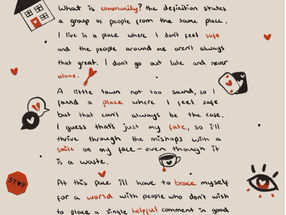 What is community? the definition states
a group of people from the same place.
I live is a place where I don't feel safe
and the people around me aren't always
that great. I don't go out late and never
alone.
A little town not too sound, so I
found a place where I feel safe
but that can't always be the case.
I guess that's just my fate, so i'll
thrive through the mishaps with a
smile on my face - even though it
is a waste.
At this pace i'll have to brace myself
for a world with people who don't wish
to place a single helpful comment in good
STOP